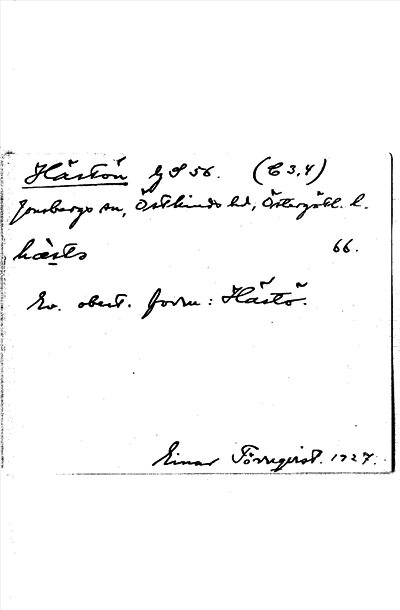 Hästön G S 56. (C 3,4)
Jonsbergs sn, Östkinds hd, Östergötl. l.
hæ̀sts 66.
Ev. obest. form: Hästö.
Einar Törnqvist. 1927.